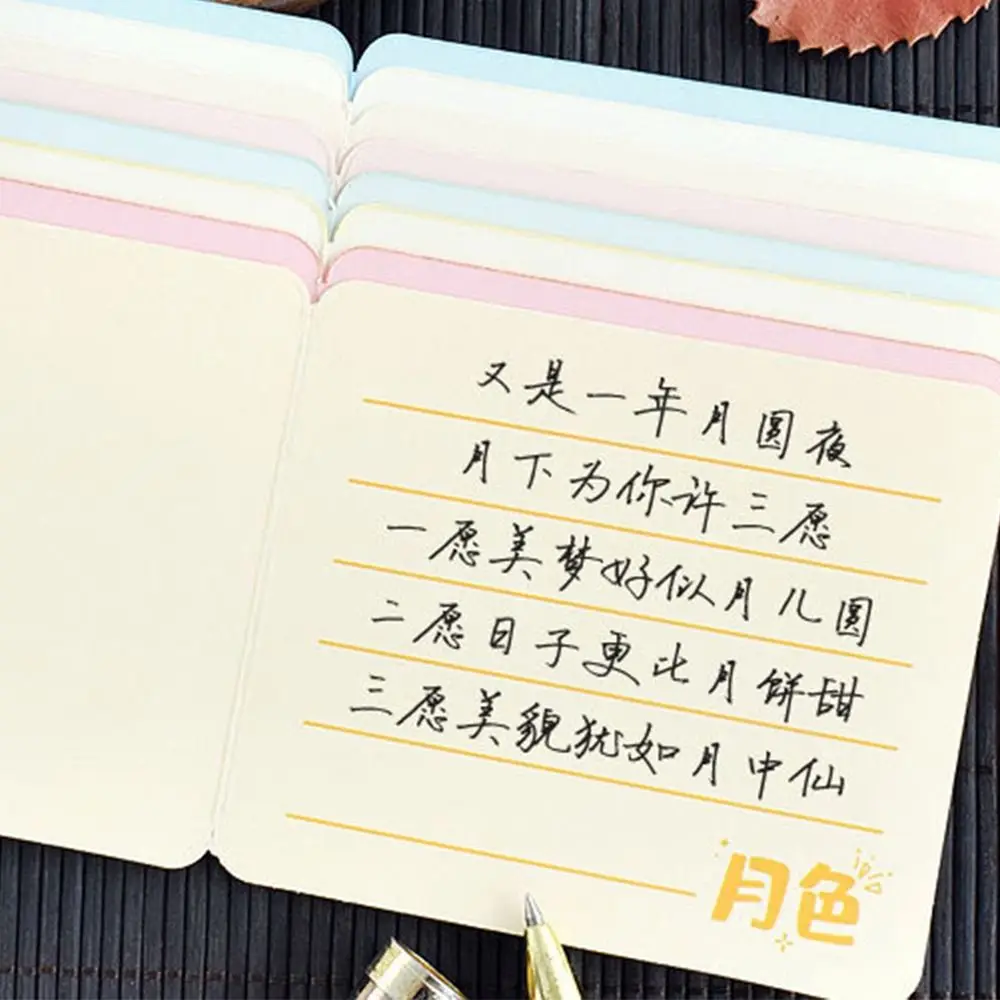 又是一年月圆夜
月下为你许三愿
一愿美梦好似月儿圆
二愿日子更比月饼甜
三愿美貌犹如月中仙
月色